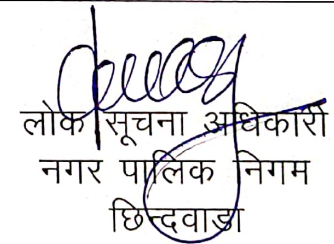 लोक सूचना अधिकारी
नगर पालिक निगम
छिन्दवाड़ा